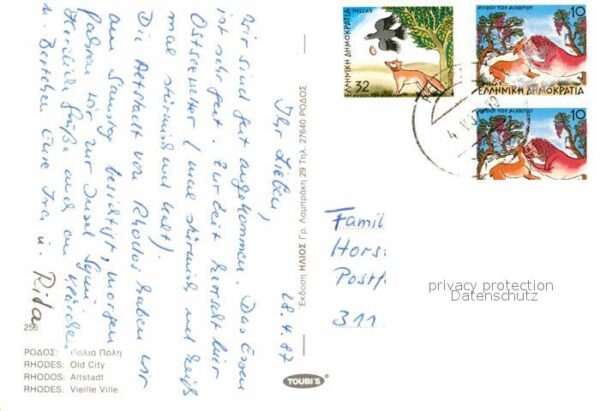 28.4.87
Ihr Lieben,
wir sind gut angekommen. Das Essen
ist sehr gut. Zur Zeit herrscht hier
Ostseewetter (mal stürmisch und heiß
mal stürmisch und kalt).
Die Altstadt von Rhodos haben wir
am Samstag besichtigt, morgen
fahren wir zur Insel Symi.
Herzliche Grüße auch an
u. Eure Ira u. Rita
Famil
Hors
Postf
311
privacy protection
Datenschutz
256
ΡΟΔΟΣ: Παλιά Πόλη
RHODES: Old City
RHODOS: Altstadt
RHODES: Vieille Ville
Έκδοση ΗΛΙΟΣ Γρ. Λαμπράκη 29 Τηλ. 27640 ΡΟΔΟΣ
TOUBI'S
HELLAS
ΕΛΛΗΝΙΚΗ ΔΗΜΟΚΡΑΤΙΑ
32
ΜΥΘΟΙ ΤΟΥ ΑΙΣΩΠΟΥ
10
ΕΛΛΗΝΙΚΗ ΔΗΜΟΚΡΑΤΙΑ
10